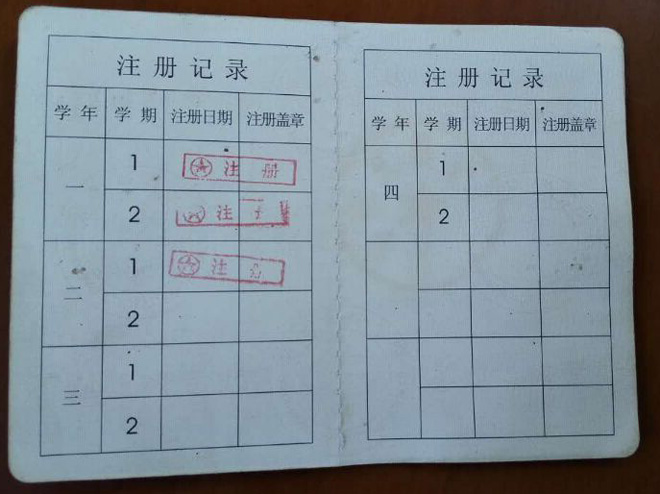 注册记录
学年 学期 注册日期 注册盖章
一 1
注 册
2
注
二 1
注
2
三 1
2
注册记录
学年 学期 注册日期 注册盖章
四 1
2